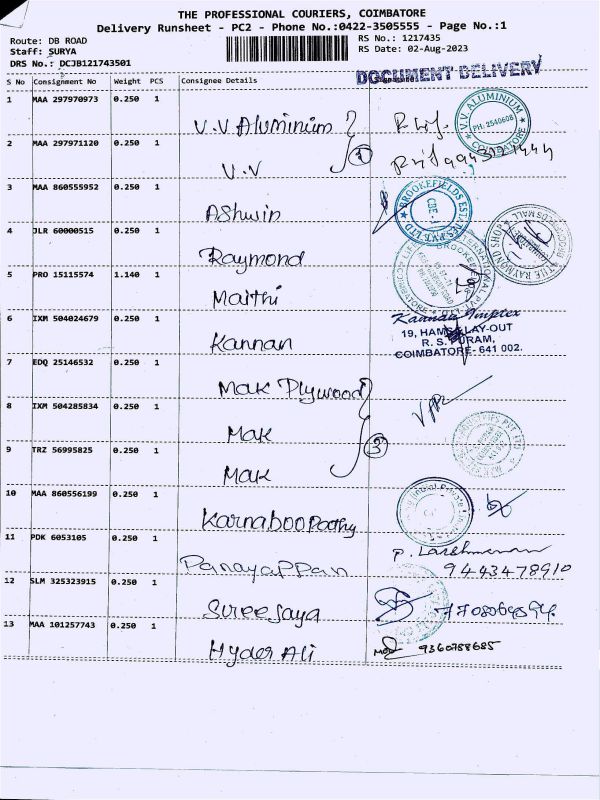 THE PROFESSIONAL COURIERS, COIMBATORE
Delivery Runsheet - PC2 - Phone No.:0422-3505555 - Page No.:1
Route: DB ROAD
Staff: SURYA
DRS No.: DCJB121743501
RS No.: 1217435
RS Date: 02-Aug-2023
DOCUMENT DELIVERY
S No Consignment No Weight PCS Consignee Details
1 MAA 297970973 0.250 1 V.V Aluminium
V.V ALUMINIUM PH: 2540608 COIMBATORE
2 MAA 297971120 0.250 1 V.V
3 MAA 860555952 0.250 1 Ashwin
BROOKEFIELDS ESTATES PVT LTD CBE-1
4 JLR 60000515 0.250 1 Raymond
THE RAYMOND SHOP
5 PRO 15115574 1.140 1 Maithi
6 IXM 504024679 0.250 1 Kannan
Kannan Imptex
19, HAMS LAY-OUT
R. S. PURAM,
COIMBATORE- 641 002.
7 EDQ 25146532 0.250 1 Mak Plywood
8 IXM 504285834 0.250 1 Mak
3
9 TRZ 56995825 0.250 1 Mak
10 MAA 860556199 0.250 1 Karnaboopathy
11 PDK 6053105 0.250 1 Panayappan
P. Lakshmanan
9443478910
12 SLM 325323915 0.250 1 Sureejaya
13 MAA 101257743 0.250 1 Hyder Ali
9360788685